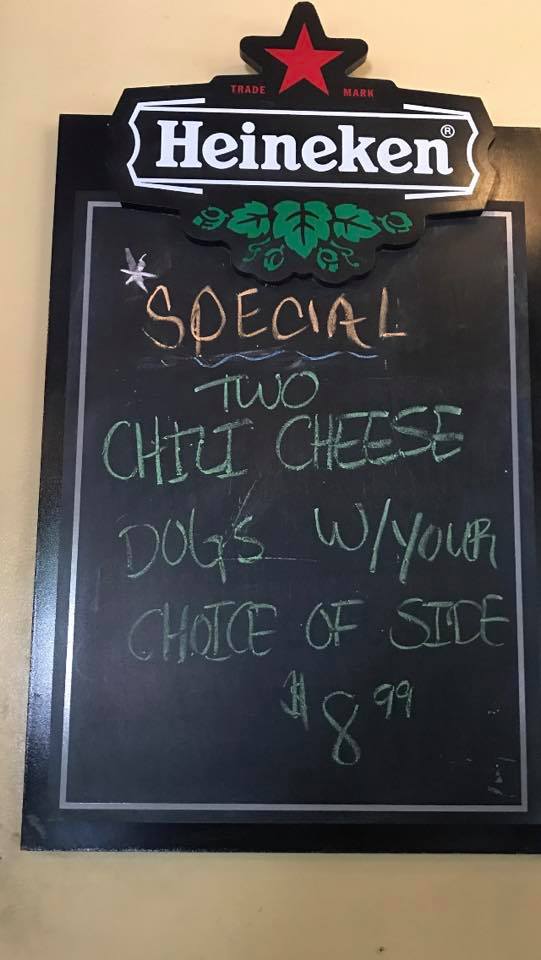 TRADE MARK
Heineken®
*SPECIAL
TWO
CHILI CHEESE
DOGS W/YOUR
CHOICE OF SIDE
$8.99